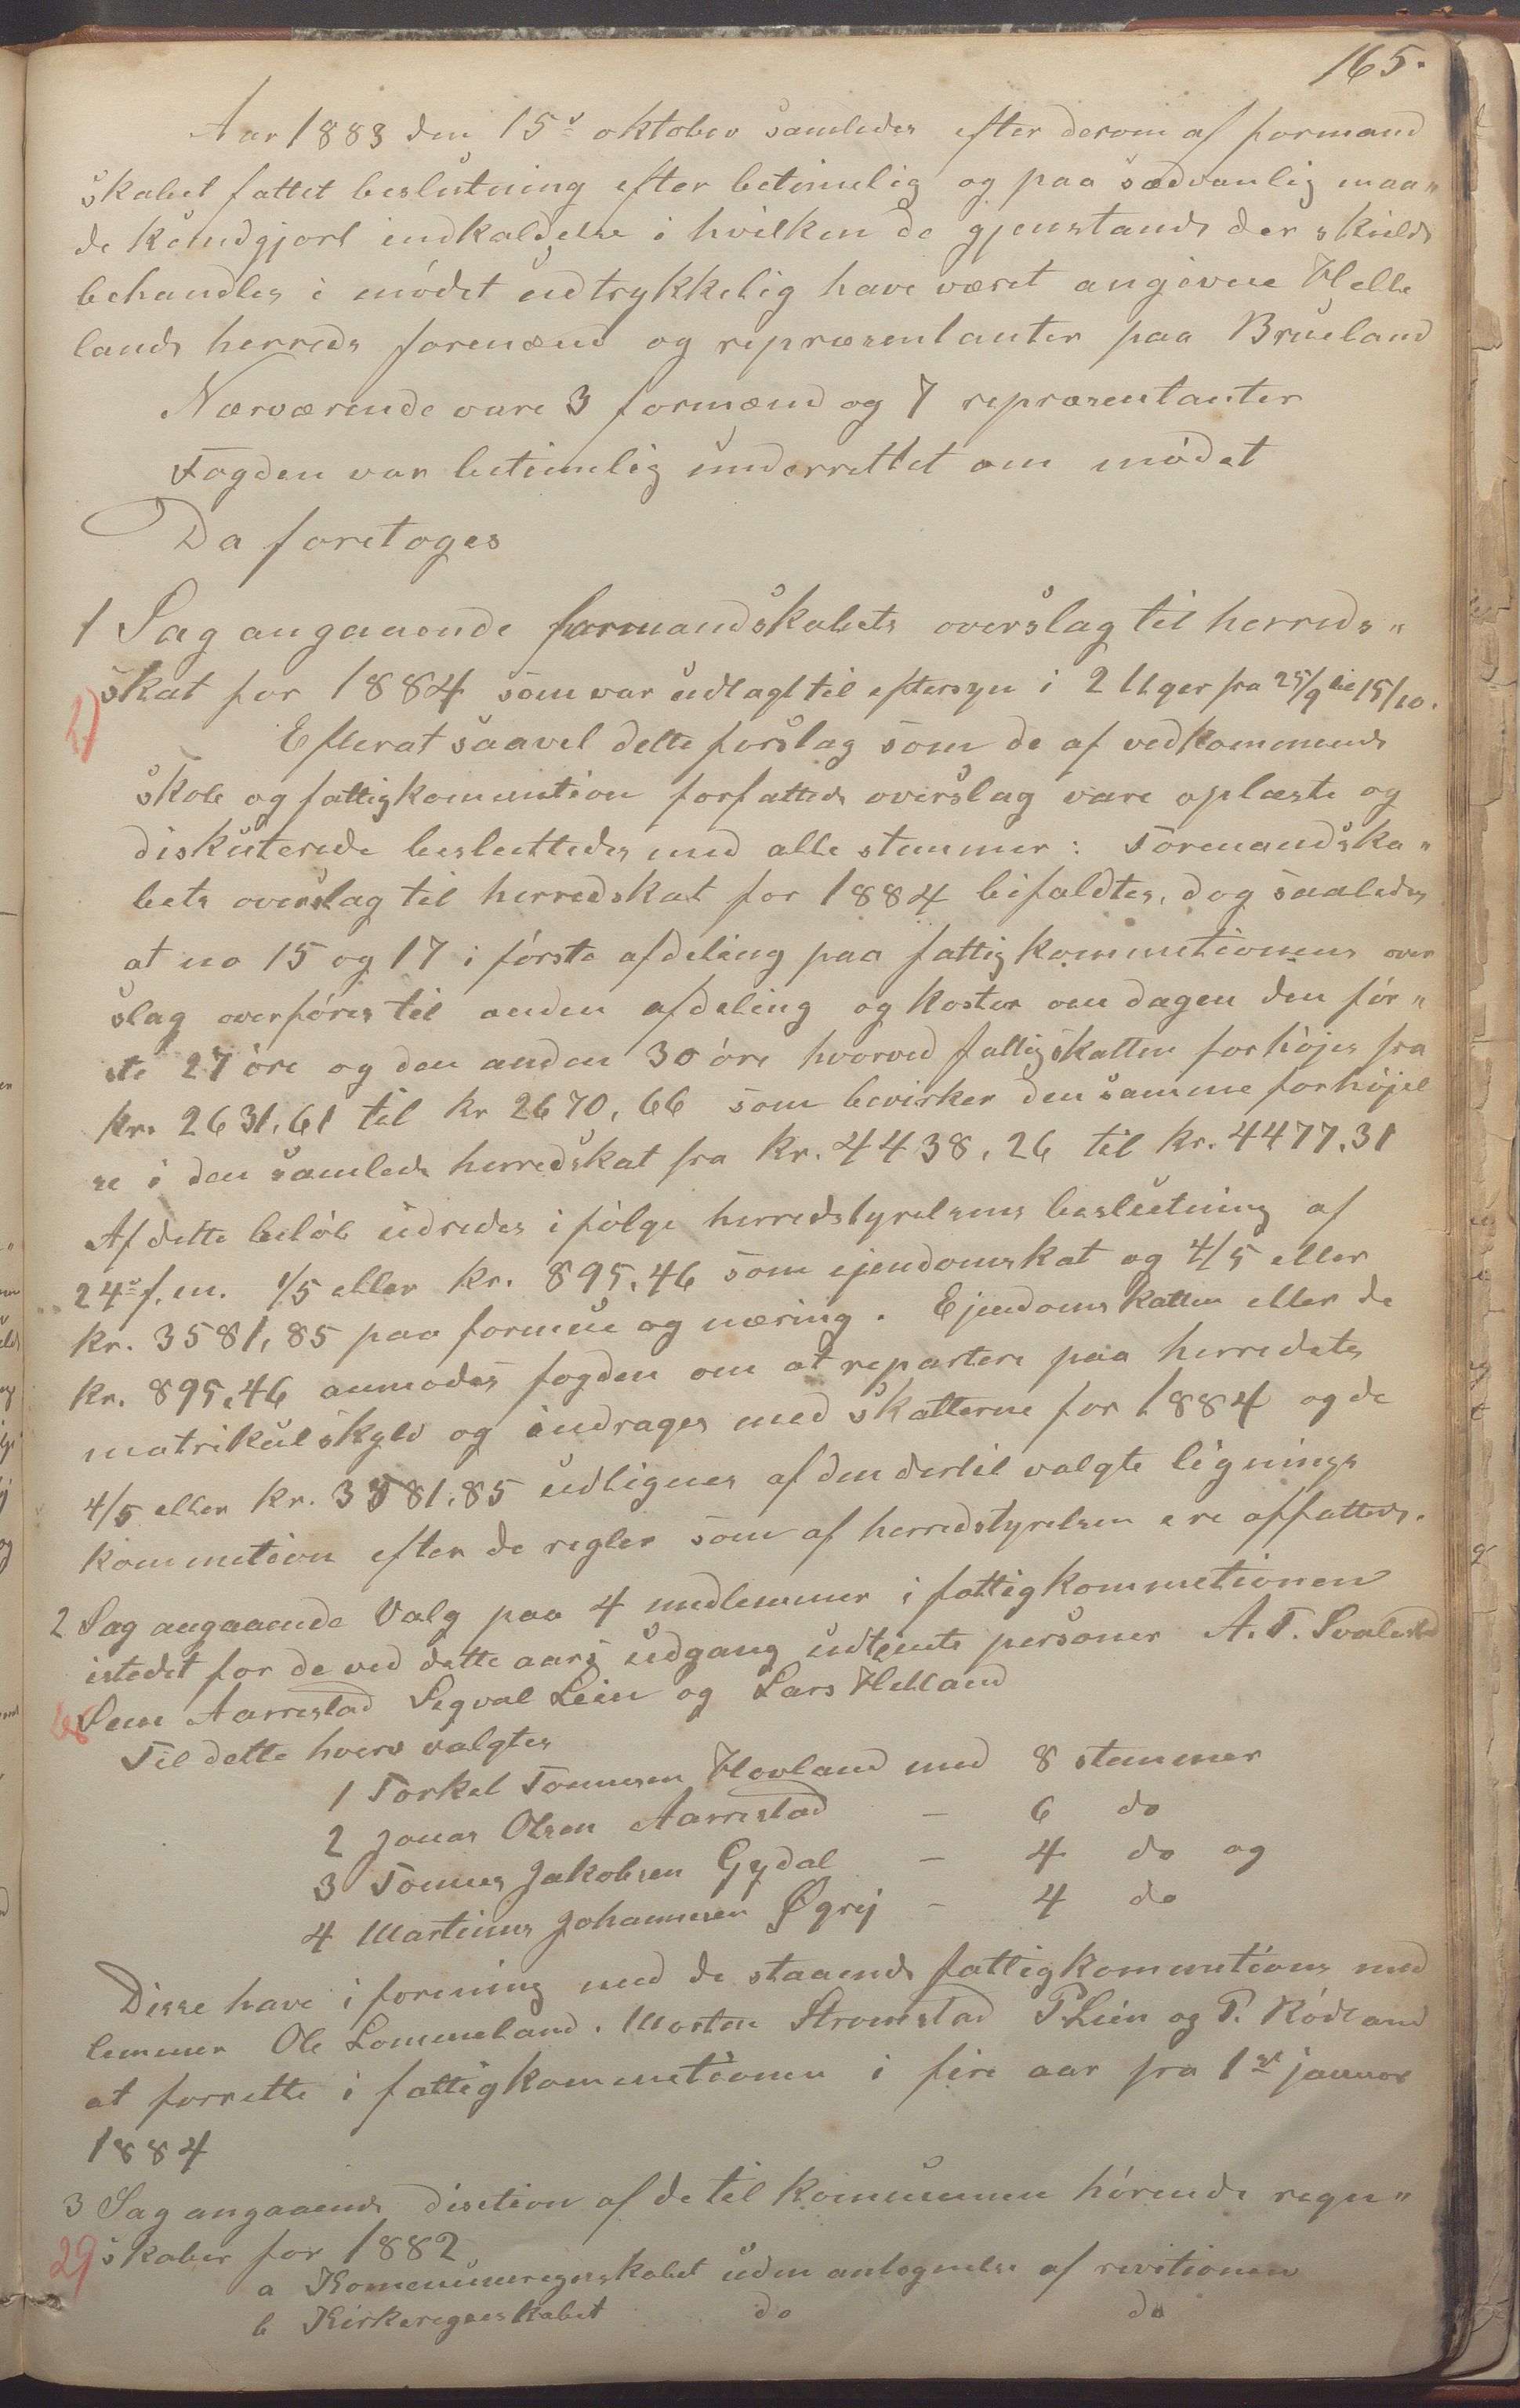 165.
Aar 1883 den 15de oktober samledes efter derom af formand
skabet fattet beslutning efter betimelig og paa sædvanlig maa"
de kundgjort indkaldelse i hvilken de gjenstande der skulde
behandles i mödet udtrykkelig have været angivene Helle
lands herreds formænd og repræsentanter paa Brueland
Nærværende vare 3 formænd og 7 repræsentanter
Fogden var betimelig underrettet om mödet
Da foretoges
1 Sag angaaende formandskabets overslag til herreds"
skat for 1884 som var udlagt til eftersyn i 2 Uger fra 25/9 til 15/10.
Efterat saavel dette forslag som de af vedkommende
skole og fattigkommition forfattede overslag vare oplæste og
diskuterede besluttedes med alle stemmer: Formandska"
bets overslag til herredskat for 1884 bifaldtes, dog saaledes
at no 15 og 17 i förste afdeling paa fattigkommitionens over
slag overföres til anden afdeling og koster om dagen den för"
ste 27 öre og den anden 30 öre hvorved fattigskatten forhöjes fra
kr. 2631,61 til kr 2670,66 som bevirker den samme forhöjel
se i den samlede herredskat fra kr. 4438,26 til kr. 4477,31
Af dette belöb udredes i fölge herredstyrelsens beslutning af
24de f.m. 1/5 eller kr. 895,46 som ejendomskat og 4/5 eller
kr. 3581,85 paa formue og næring. Ejendomskatten eller de
kr. 895,46 anmodes fogden om at repartere paa herredets
matrikulskyld og inddrages med skatterne for 1884 og de
4/5 eller kr. 3581,85 udlignes af den dertil valgte lignings
kommition efter de regler som af herredstyrelsen ere affattede.
2 Sag angaaende Valg paa 4 medlemmer i fattigkommitionen
istedet for de ved dette aars udgang udtjente personer A. T. Svalestad
Sem Aarrestad Segval Lein og Lars Helland
Til dette hverv valgtes
1 Torkel Tonnesen Hovland med 8 stemmer
2 Jonas Olsen Aarrestad – 6 do
3 Tonnes Jakobsen Gydal – 4 do og
4 Martinus Johannesen Øgrej – 4 do
Disse have i forening med de staaende fattigkommitions med
lemmer Ole Lommeland. Morten Stromstad P Lien og P. Rödland
at forrette i fattigkommitionen i fire aar fra 1st januar
1884
3 Sag angaaende disetion af de til kommunen hörende regn"
29 skaber for 1882
a Kommuneregnskabet uden antegnelse af revitionen
b Kirkeregnskabet do do